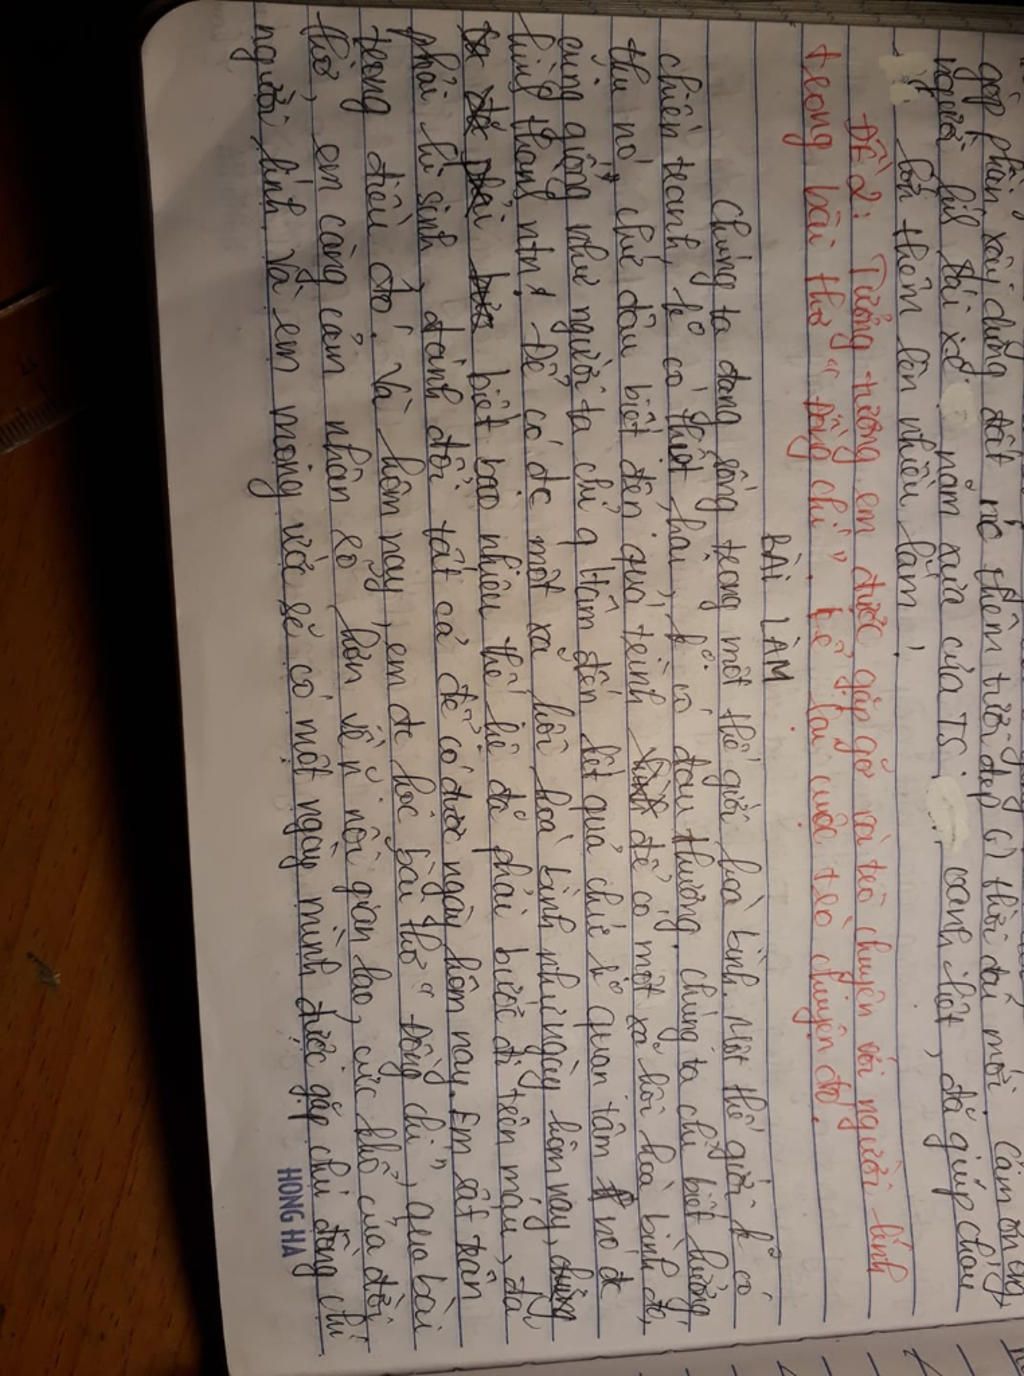 góp phần xây dựng đất nước thêm tươi đẹp thời đại mới. Cảm ơn ông,
người lái xe năm xưa của TS oanh liệt, đã giúp cháu
hiểu thêm lên nhiều lắm!
ĐỀ 2: Tưởng tượng em được gặp gỡ và trò chuyện với người lính
trong bài thơ "Đồng chí". Kể lại cuộc trò chuyện đó.
BÀI LÀM
Chúng ta đang sống trong một thế giới hoà bình. Một thế giới k có
chiến tranh, k có thiệt hại, k có đau thương. chúng ta chỉ biết hưởng
thụ nó chứ đâu biết đến quá trình để có một xã hội hoà bình đó,
cũng giống như người ta chỉ q tâm đến kết quả chứ k quan tâm nó đc
hình thành ntn! Để có đc một xã hội hoà bình như ngày hôm nay,
biết bao nhiêu thế hệ đã phải bước đi trên máu, đã
phải hi sinh, đánh đổi tất cả để có được ngày hôm nay. Em rất trân
trọng điều đó. Và hôm nay, em đc học bài thơ "Đồng chí", qua bài
thơ, em càng cảm nhận rõ hơn về nỗi gian lao, cực khổ của đời
người lính. Và em mong ước sẽ có một ngày mình được gặp chú đồng chí
HONG HA